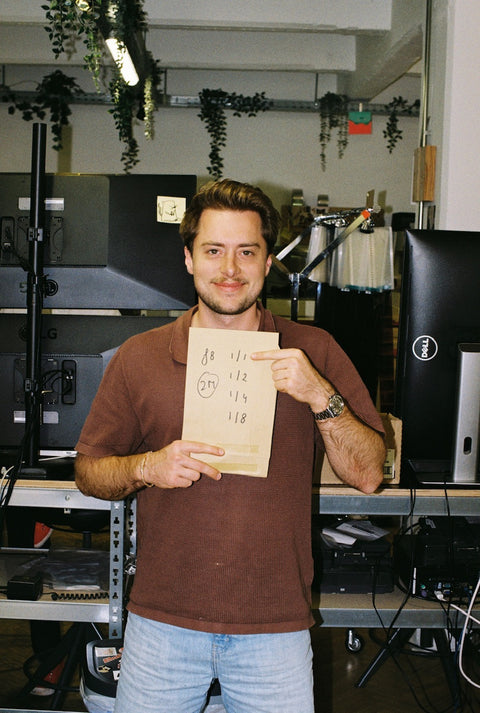 JB 1/1
2M 1/2
1/4
1/8
DELL
LG